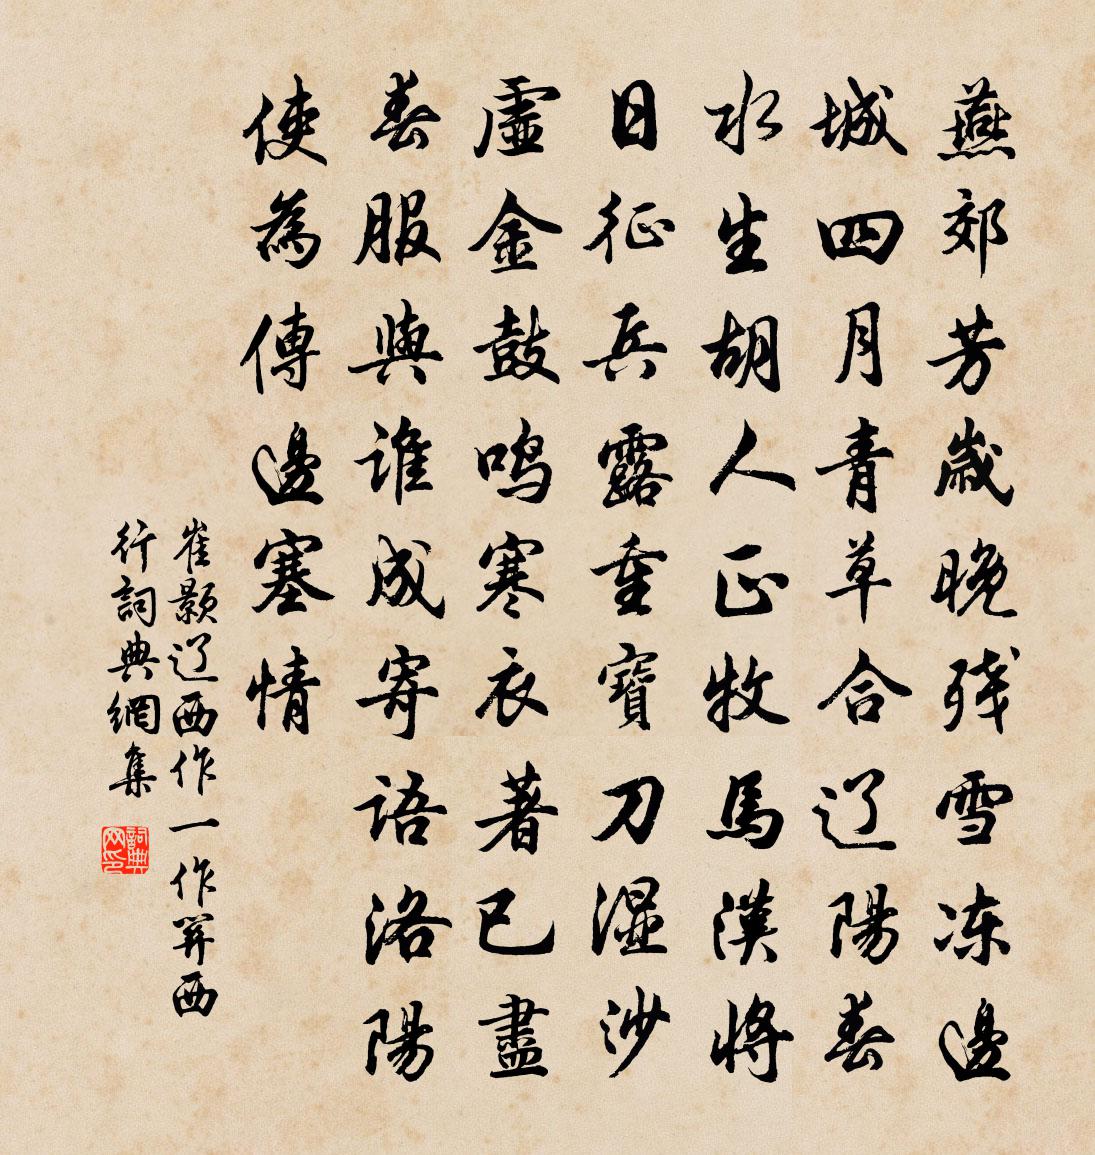 燕郊芳歲晚残雪冻邊
城四月青草合辽陽春
水生胡人正牧馬漢將
日征兵露重寶刀湿沙
虛金鼓鳴寒衣著已盡
春服與誰成寄語洛陽
使為傳邊塞情
崔颢辽西作一作关西
行詞典網集
詞典网印